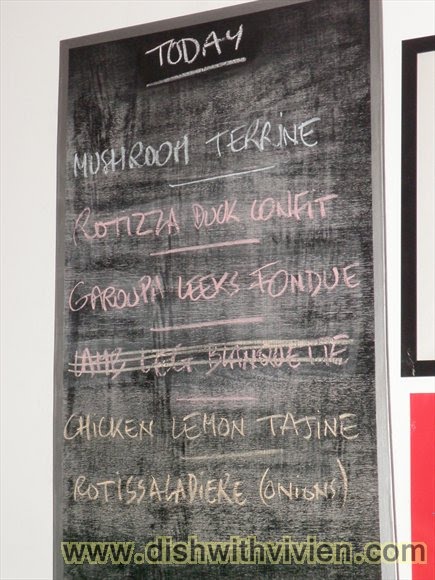 TODAY
MUSHROOM TERRINE
ROTIZZA DUCK CONFIT
GAROUPA LEEKS FONDUE
LAMB LEG BLANQUETTE
CHICKEN LEMON TAJINE
ROTISSALADIERE (ONIONS)
www.dishwithvivien.com